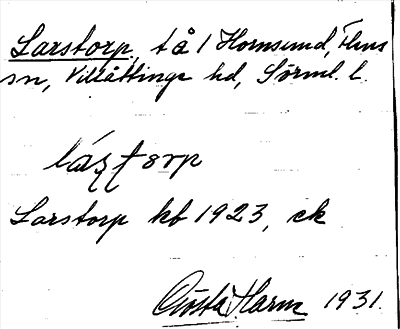 Larstorp, t å 1 Hornsund, Flens
sn, Villåttinge hd, Sörml. l.
láʂʈorp
Larstorp kb 1923, ek
Gösta Harm 1931.